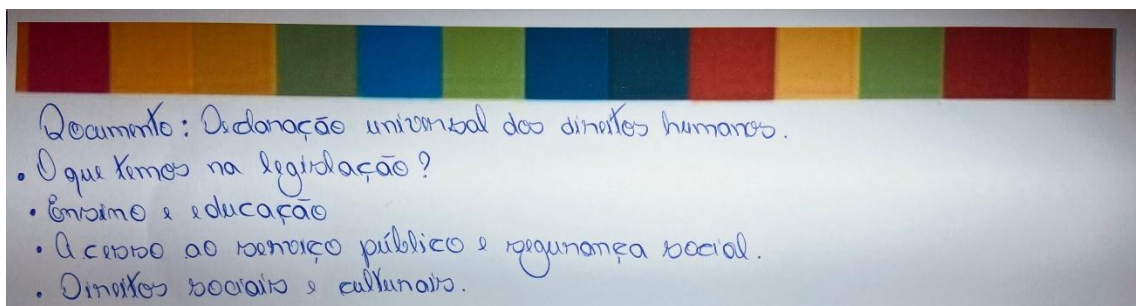 Documento: Declaração universal dos direitos humanos.
. O que temos na legislação?
. Ensino e educação
. Acesso ao serviço público e segurança social.
. Direitos sociais e culturais.